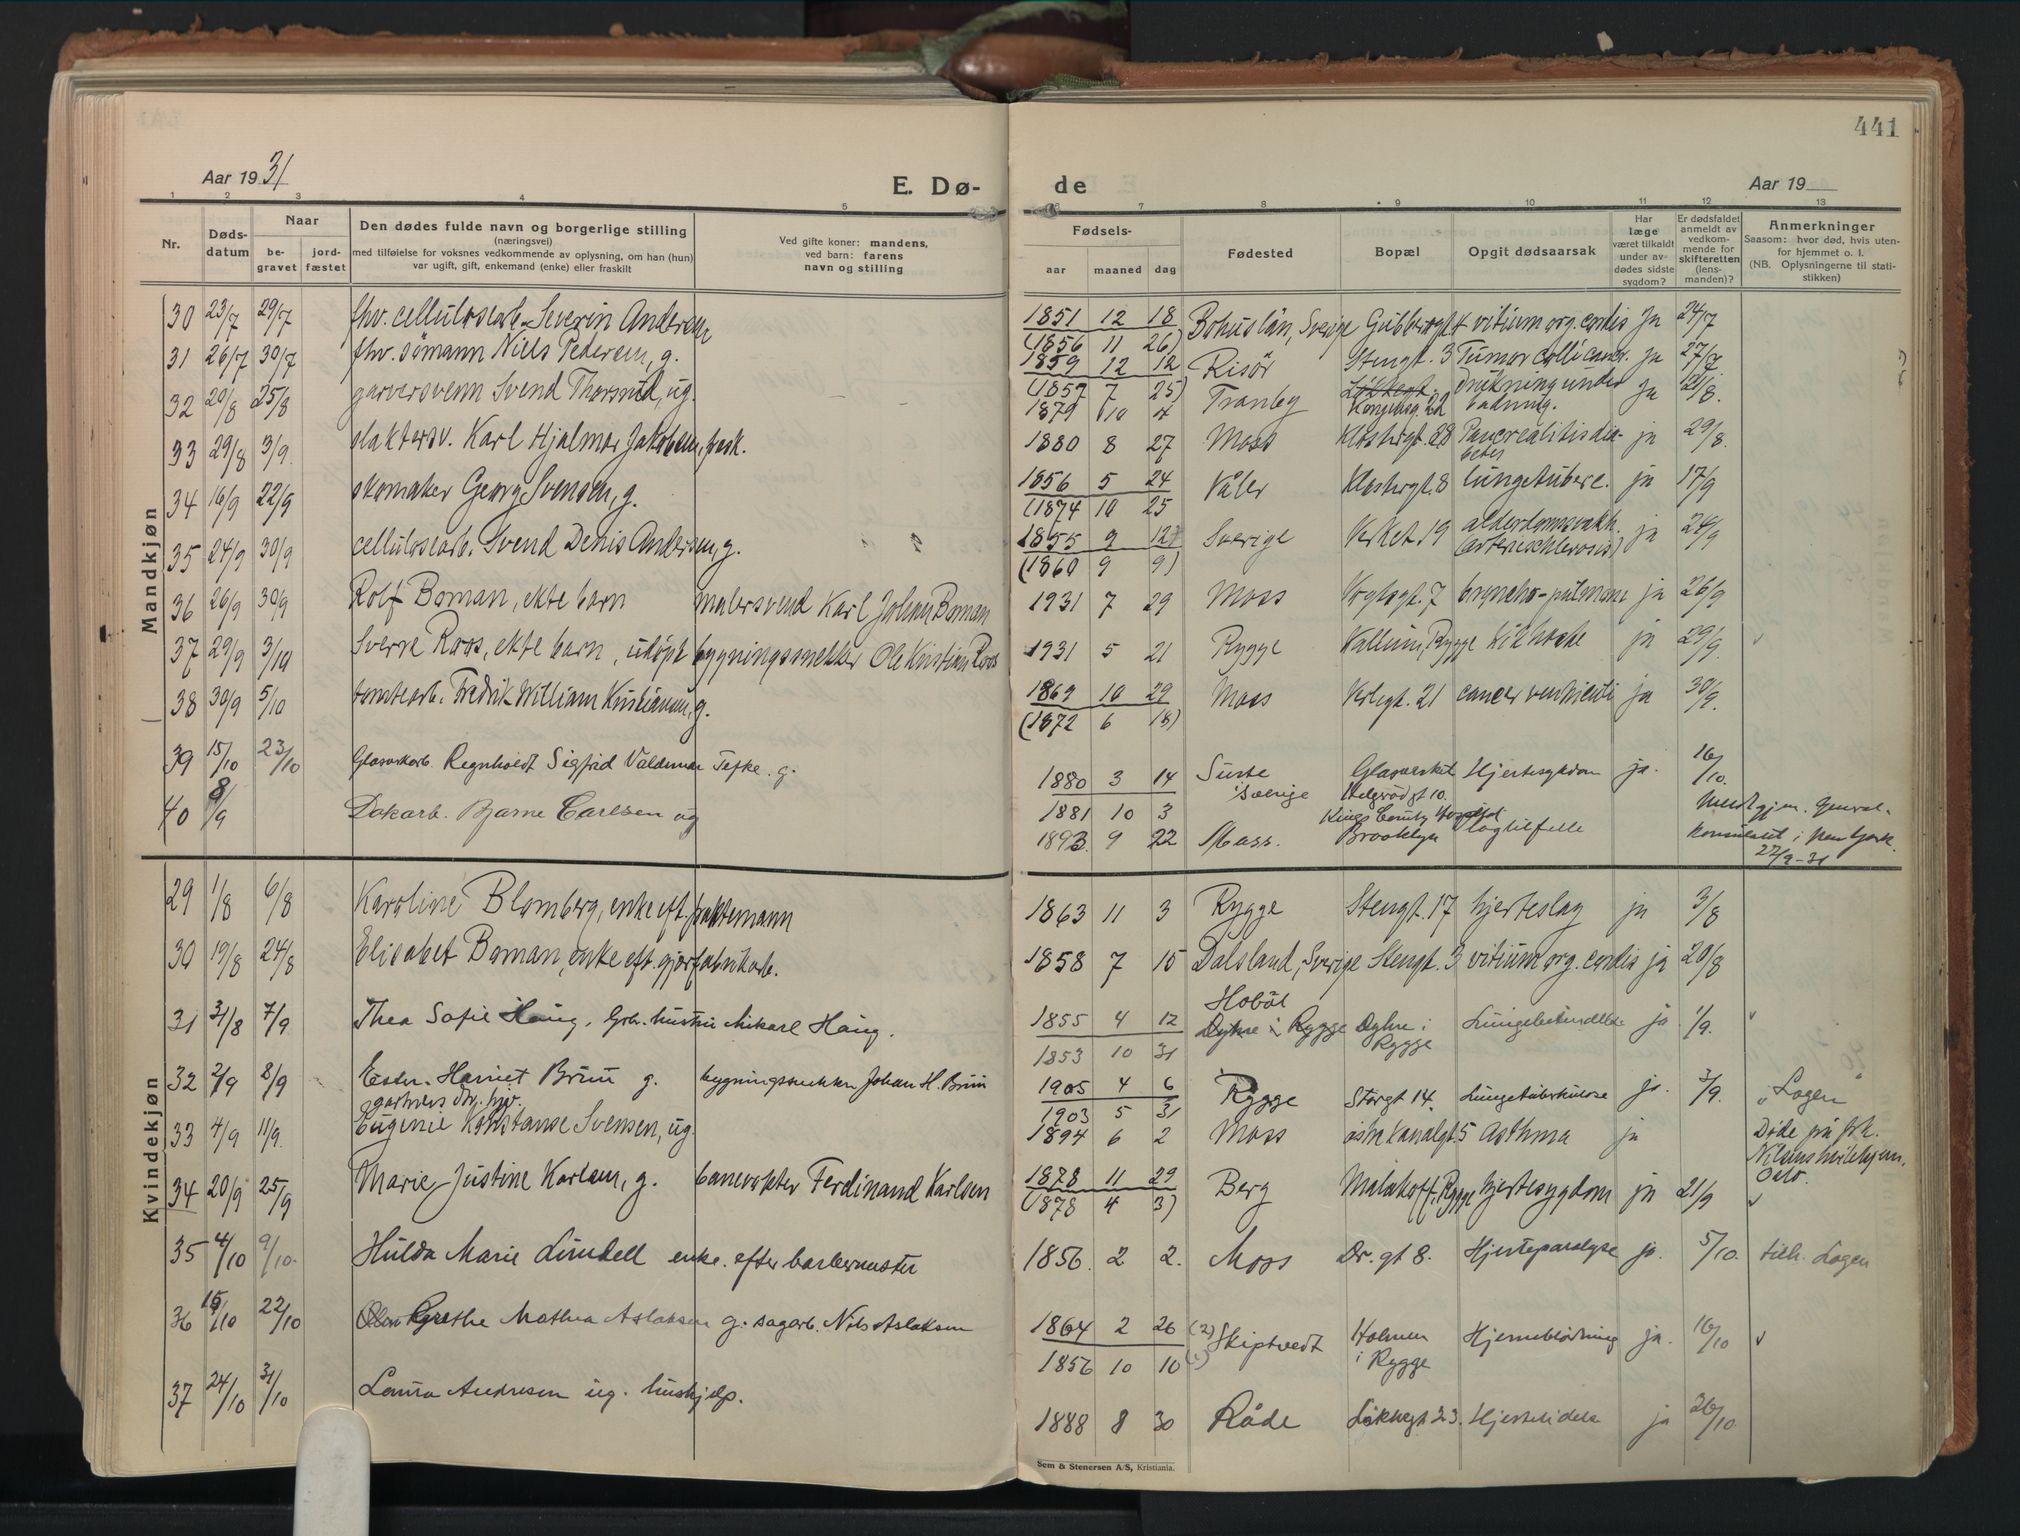 441
Aar 1931
E. Dø-
de
Aar 19
1 2 3 4 5 6 7 8 9 10 11 12 13
Nr.
Døds-
datum
Naar
be-
gravet
jord-
fæstet
Den dødes fulde navn og borgerlige stilling
(næringsvei)
med tilføielse for voksnes vedkommende av oplysning, om han (hun)
var ugift, gift, enkemand (enke) eller fraskilt
Ved gifte koner: mandens,
ved barn: farens
navn og stilling
Fødsels-
aar maaned dag
Fødested
Bopæl
Opgit dødsaarsak
Har
læge
været tilkaldt
under av-
dødes sidste
sygdom?
Er dødsfaldet
anmeldt av
vedkom-
mende for
skifteretten
(lens-
manden)?
Anmerkninger
Saasom: hvor død, hvis uten-
for hjemmet o. l.
(NB. Oplysningerne til stati-
stikken)
Mandkjøn
30 23/7 29/7 fhv. cellulosearb. Severin Andersen 1851 12 18 Bohuslän, Sverige Gubberogt. 4 vitium org. cordis Ja 24/7
(1856 11 26)
31 26/7 30/7 fhv. sömann Niels Pedersen, g. 1859 12 12 Risör Stengt. 3 Tumor colli cancr. ja 27/7
(1857 7 25)
32 20/8 25/8 garversvenn Svend Thorsrud, ug. 1879 10 4 Tranby Kongensg. 22 Drukning under badning. Ja 21/8.
33 29/8 3/9. slaktersv. Karl Hjalmar Jakobsen, frask. 1880 8 27 Moss Klostergt. 28 Pancrealitis diabetes ja 29/8.
34 16/9 22/9 skomaker Georg Svensen, g. 1856 5 24 Våler Klostergt. 8 lungetuberc. ja 17/9
(1874 10 25
35 24/9 30/9 cellulosearb. Svend Denis Andersen, g. 1855 9 12 Sverige Verket 19 alderdomssvakh. (arterischlerosis) ja 24/9
(1860 9 9)
36 26/9 30/9 Rolf Boman, ekte barn malersvend Karl Johan Boman 1931 7 29 Moss Vogtsgt. 7 broncho-pulmoni ja 26/9
37 29/9 3/10 Sverre Roos, ekte barn, udöpt bygningssnekker Ole Kristian Roos 1931 5 21 Rygge Vallum, Rygge kikhoste ja 29/9. v
38 30/9 5/10 tomtearb. Fredrik William Kristiansen, g. 1869 10 29 Moss Verlegt. 21 cancer ventriculi ja 30/9.
(1872 6 18)
39 15/10 23/10 Glasverkarb. Regnholdt Sigfrid Valdemar Tefke. g. 1880 3 14 Surte i Sverige Glasverket Helgerödgt 10. Hjertesykdom ja. 16/10.
1881 10 3
40 8/9 Dokarb. Bjarne Carlsen ug 1893 9 22 Moss. Kings County Hospital Brooklyn Slagtilfelle Meldt gjm. General-
konsulatet i New York.
22/9-31
Kvindekjøn
29 1/8 6/8 Karoline Blomberg, enke eft. fraktemann 1863 11 3 Rygge Stengt. 17 hjerteslag ja 3/8
30 19/8 24/8 Elisabet Boman, enke eft. gjørfabrikarb. 1858 7 15 Dalsland, Sverige Stengt. 3 vitium org. cordis ja 20/8
31 31/8 7/9 Thea Sofie Haug, Grb. hustru Mikael Haug. 1855 4 12 Hobøl Dyhre i Rygge Dyhre i Rygge Lungebetendelse ja 1/9. v
1853 10 31
32 2/9 8/9 Ester Harriet Bruu g. bygningssnekker Johan H. Bruu 1905 4 6 Rygge Storgt 14. Lungetuberkulose ja. 3/9. "Logen"
1903 5 31
33 4/9 11/9. gartners dtr. hjv. Eugenie Konstanse Svensen, ug. 1894 6 2 Moss östre Kanalgt. 5 Asthma ja Døde på frk. Nilsens hvilehjem, Oslo.
34 20/9 25/9 Marie Justine Karlsen, g. banevokter Ferdinand Karlsen 1878 11 29 Berg Malakoff, Rygge hjertesygdom ja 21/9 v
(1878 4 3)
35 4/10 9/10. Hulda Marie Lindell enke. efter barbermester 1856 2 2. Moss Dr. gt 8. Hjerteparalyse ja. 5/10. tilh. Logen
36 15/10 22/10 Grethe Mathea Aslaksen g. sagarb. Nils Aslaksen 1864 2 26 (2) Skiptvedt Holmen i Rygge Hjerneblødning ja. 16/10 v
1856 10 10 (1)
37 24/10 31/10 Laura Andresen ug. hushjelp. 1888 8 30 Råde Løkkegt 23. Hjertelidelse ja 26/10.
Sem & Stenersen A/S, Kristiania.